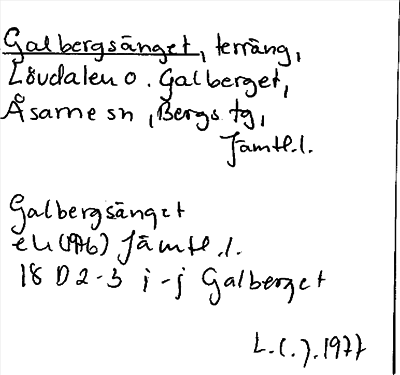 Galbergsänget, terräng,
Lövdalen o. Galberget,
Åsarne sn, Bergs tg,
Jämtl.l.
Galbergsänget
ek (1976) Jämtl.l.
18 D 2-3 i-j Galberget
L.(.).1977